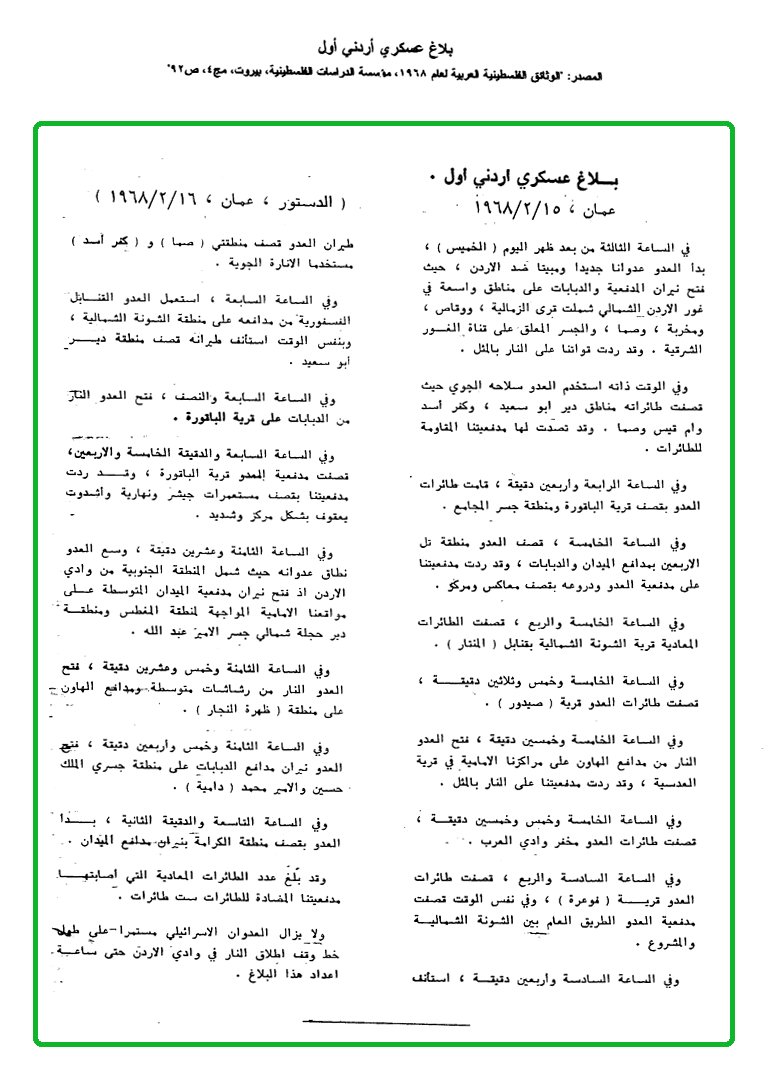 بلاغ عسكري أردني أول
المصدر: "الوثائق الفلسطينية العربية لعام ١٩٦٨، مؤسسة الدراسات الفلسطينية، بيروت، مج٤، ص٩٢"
بـــلاغ عسكري اردني اول .
عمان ، ١٩٦٨/٢/١٥
في الساعة الثالثة من بعد ظهر اليوم ( الخميس ) ،
بدأ العدو عدوانا جديدا ومبيتا ضد الاردن ، حيث
فتح نيران المدفعية والدبابات على مناطق واسعة في
غور الاردن الشمالي شملت قرى الزمالية ، ووقاص ،
ومخربة ، وصما ، والجسر المعلق على قناة الغـــور
الشرقية . وقد ردت قواتنا على النار بالمثل .
وفي الوقت ذاته استخدم العدو سلاحه الجوي حيث
قصفت طائراته مناطق دير ابو سعيد ، وكفر أسد
وام قيس وصما . وقد تصدت لها مدفعيتنا المقاومة
للطائرات .
وفي الساعة الرابعة وأربعين دقيقة ، قامت طائرات
العدو بقصف قرية الباقورة ومنطقة جسر المجامع .
وفي الساعة الخامسة ، قصف العدو منطقة تل
الاربعين بمدافع الميدان والدبابات ، وقد ردت مدفعيتنا
على مدفعية العدو ودروعه بقصف معاكس ومركز .
وفي الساعة الخامسة والربع ، قصفت الطائرات
المعادية قرية الشونة الشمالية بقنابل ( المنتار ) .
وفي الساعة الخامسة وخمس وثلاثين دقيقـــة ،
قصفت طائرات العدو قرية ( صيدور ) .
وفي الساعة الخامسة وخمسين دقيقة ، فتح العدو
النار من مدافع الهاون على مراكزنا الامامية في قرية
العدسية ، وقد ردت مدفعيتنا على النار بالمثل .
وفي الساعة الخامسة وخمس وخمسين دقيقـة ،
قصفت طائرات العدو مخفر وادي العرب .
وفي الساعة السادسة والربع ، قصفت طائرات
العدو قريـــة ( فوعرة ) ، وفي نفس الوقت قصفت
مدفعية العدو الطريق العام بين الشونة الشماليـــة
والمشروع .
وفي الساعة السادسة وأربعين دقيقـــة ، استأنف
( الدستور ، عمان ، ١٩٦٨/٢/١٦ )
طيران العدو قصف منطقتي ( صما ) و ( كفر أسد )
مستخدما الانارة الجوية .
وفي الساعة السابعة ، استعمل العدو القنـــابل
الفسفورية من مدافعه على منطقة الشونة الشمالية ،
وبنفس الوقت استأنف طيرانه قصف منطقة ديـــر
أبو سعيد .
وفي الساعة السابعة والنصف ، فتح العدو النار
من الدبابات على قرية الباقورة .
وفي الساعة السابعة والدقيقة الخامسة والاربعين،
قصفت مدفعية العدو قرية الباقورة ، وقـــد ردت
مدفعيتنا بقصف مستعمرات جيشر ونهارية وأشدوت
يعقوف بشكل مركز وشديد .
وفي الساعة الثامنة وعشرين دقيقة ، وسع العدو
نطاق عدوانه حيث شمل المنطقة الجنوبية من وادي
الاردن اذ فتح نيران مدفعية الميدان المتوسطة علـــى
مواقعنا الامامية المواجهة لمنطقة المغطس ومنطقـــة
دير حجلة شمالي جسر الامير عبد الله .
وفي الساعة الثامنة وخمس وعشرين دقيقة ، فتح
العدو النار من رشاشات متوسطة ومدافع الهاون
على منطقة ( ظهرة النجار ) .
وفي الساعة الثامنة وخمس وأربعين دقيقة ، فتح
العدو نيران مدافع الدبابات على منطقة جسري الملك
حسين والامير محمد ( دامية ) .
وفي الساعة التاسعة والدقيقة الثانية ، بـــدأ
العدو بقصف منطقة الكرامة بنيران مدافع الميدان .
وقد بلغ عدد الطائرات المعادية التي أصابتهـــا
مدفعيتنا المضادة للطائرات ست طائرات .
ولا يزال العدوان الاسرائيلي مستمرا على طول
خط وقف اطلاق النار في وادي الاردن حتى ساعـــة
اعداد هذا البلاغ .